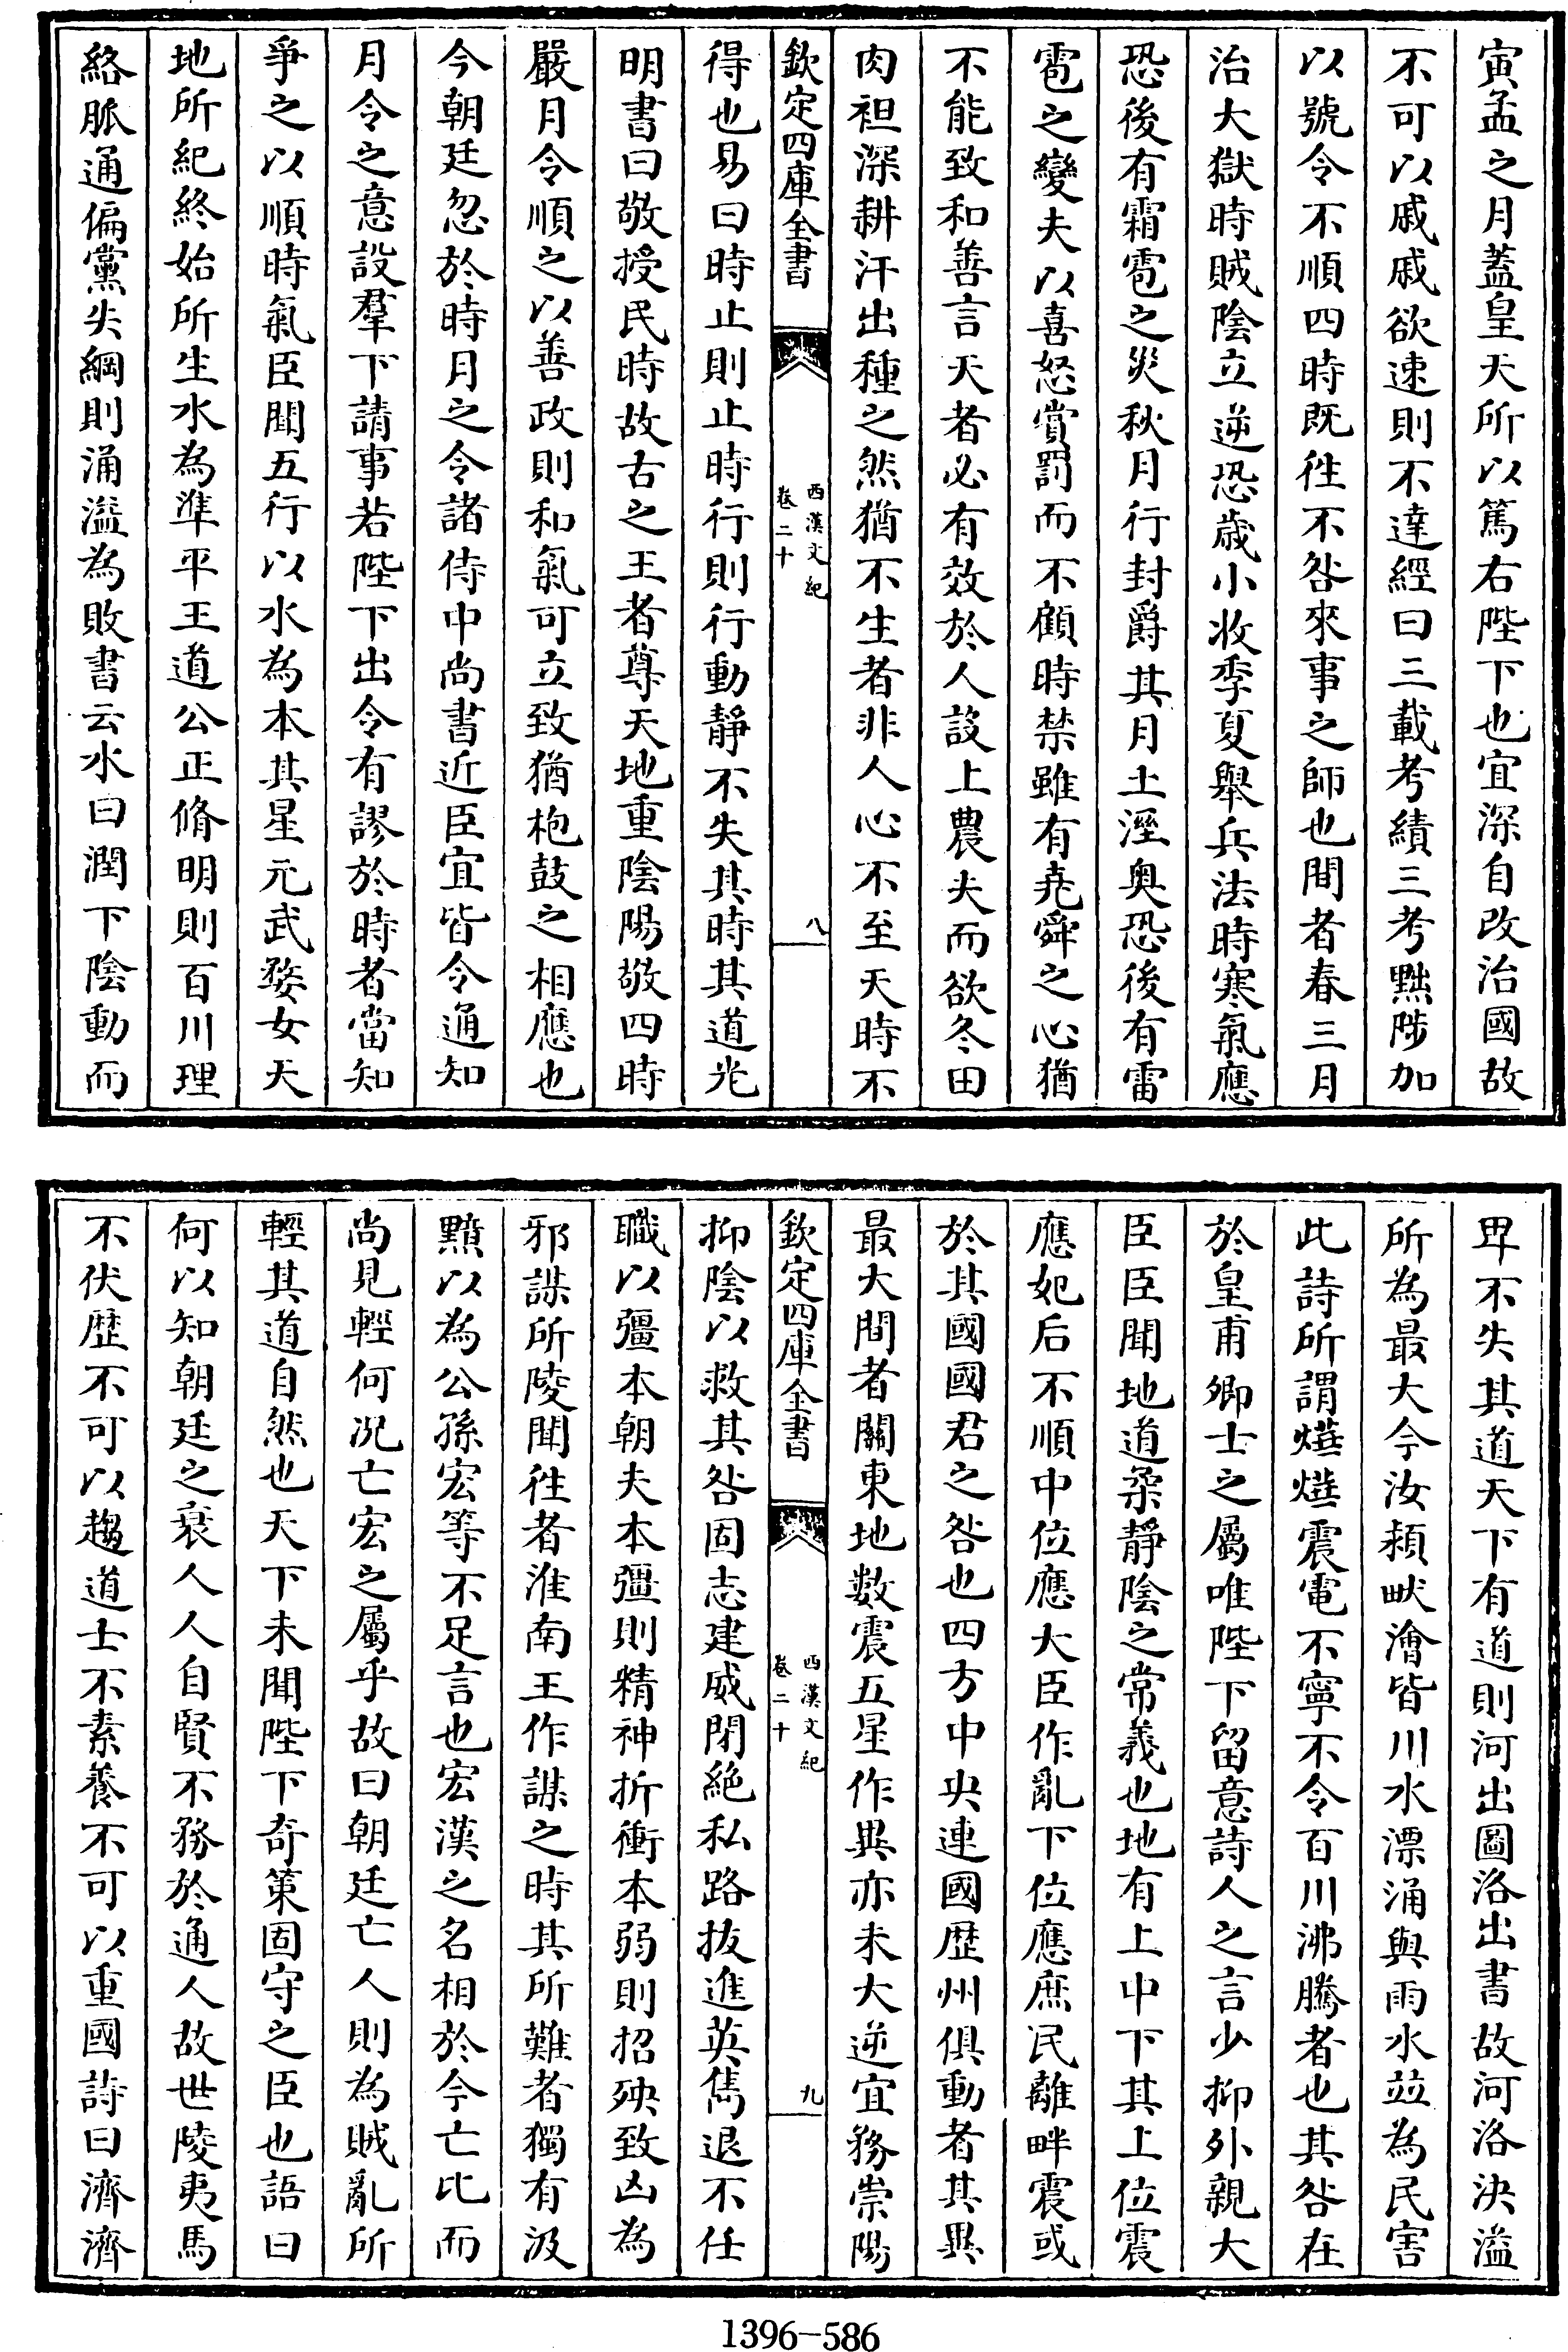 寅孟之月蓋皇天所以篤右陛下也宜深自改治國故
不可以戚戚欲速則不達經曰三載考績三考黜陟加
以號令不順四時既徃不咎來事之師也間者春三月
治大獄時賊陰立逆恐歲小收季夏舉兵法時寒氣應
恐後有霜雹之災秋月行封爵其月土溼奥恐後有雷
雹之變夫以喜怒賞罰而不顧時禁雖有堯舜之心猶
不能致和善言天者必有效於人設上農夫而欲冬田
肉袒深耕汗出種之然猶不生者非人心不至天時不
欽定四庫全書
西漢文紀
卷二十
八
得也易曰時止則止時行則行動靜不失其時其道光
明書曰敬授民時故古之王者尊天地重陰陽敬四時
嚴月令順之以善政則和氣可立致猶枹鼓之相應也
今朝廷忽於時月之令諸侍中尚書近臣宜皆令通知
月令之意設羣下請事若陛下出令有謬於時者當知
爭之以順時氣臣聞五行以水為本其星元武婺女天
地所紀終始所生水為準平王道公正脩明則百川理
絡脈通偏黨失綱則涌溢為敗書云水曰潤下陰動而
卑不失其道天下有道則河出圖洛出書故河洛決溢
所為最大今汝潁畎澮皆川水漂涌與雨水竝為民害
此詩所謂爗爗震電不寧不令百川沸騰者也其咎在
於皇甫卿士之屬唯陛下留意詩人之言少抑外親大
臣臣聞地道柔靜陰之常義也地有上中下其上位震
應妃后不順中位應大臣作亂下位應庶民離畔震或
於其國國君之咎也四方中央連國歷州俱動者其異
最大間者關東地數震五星作異亦未大逆宜務崇陽
欽定四庫全書
西漢文紀
卷二十
九
抑陰以救其咎固志建威閉絕私路拔進英雋退不任
職以彊本朝夫本彊則精神折衝本弱則招殃致凶為
邪謀所陵聞徃者淮南王作謀之時其所難者獨有汲
黯以為公孫宏等不足言也宏漢之名相於今亡比而
尚見輕何况亡宏之屬乎故曰朝廷亡人則為賊亂所
輕其道自然也天下未聞陛下奇策固守之臣也語曰
何以知朝廷之衰人人自賢不務於通人故世陵夷馬
不伏歷不可以趨道士不素養不可以重國詩曰濟濟
1396-586